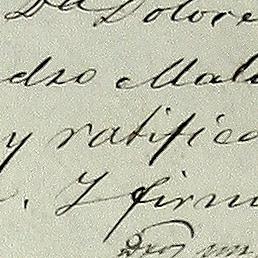 Da Dolore
dro Mal
y ratific
. Y firm